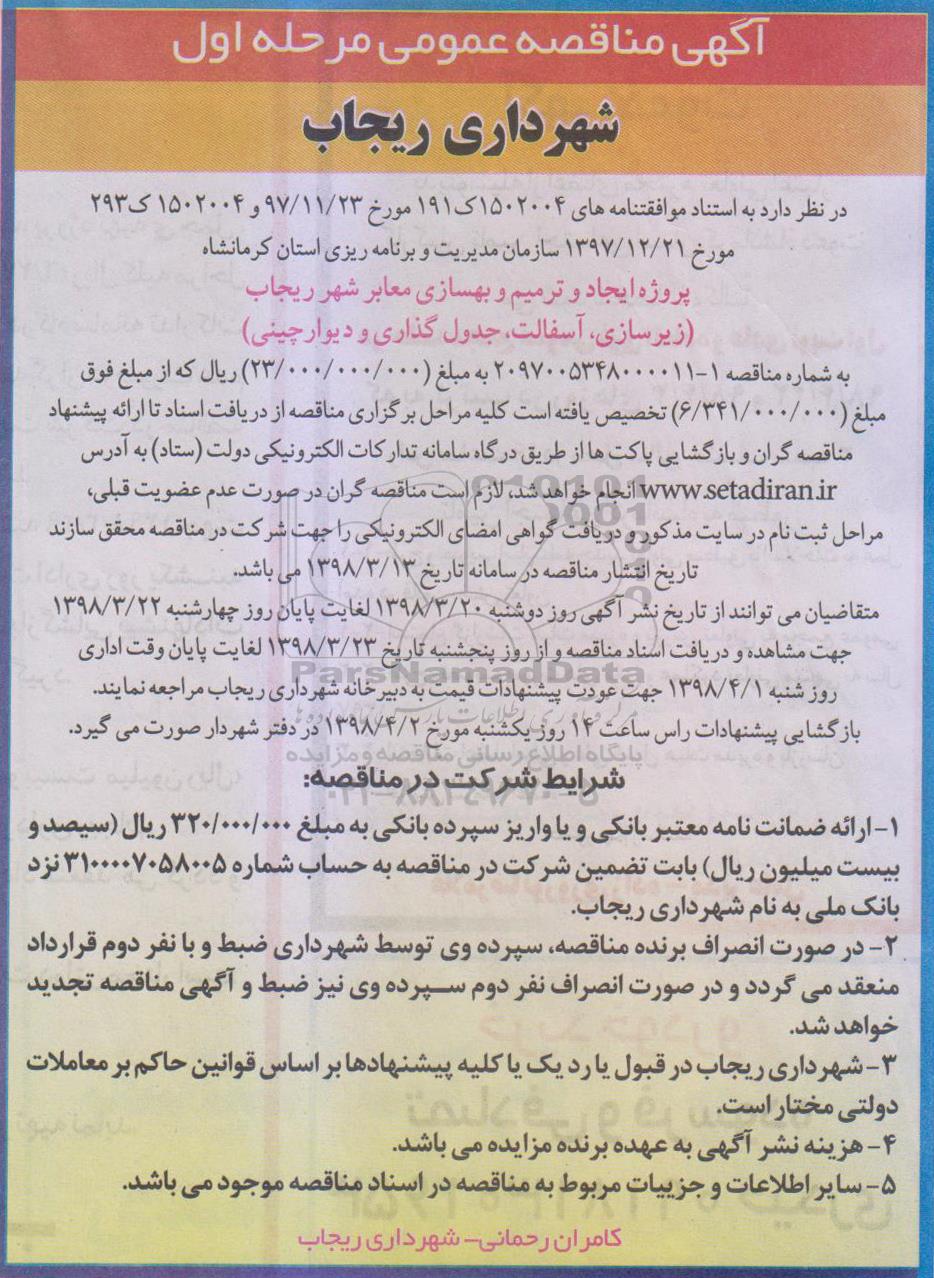 آگهی مناقصه عمومی مرحله اول
شهرداری ریجاب
در نظر دارد به استناد موافقتنامه های ۱۵۰۲۰۰۴ک۱۹۱ مورخ ۹۷/۱۱/۲۳ و ۱۵۰۲۰۰۴ ک۲۹۳
مورخ ۱۳۹۷/۱۲/۲۱ سازمان مدیریت و برنامه ریزی استان کرمانشاه
پروژه ایجاد و ترمیم و بهسازی معابر شهر ریجاب
(زیرسازی، آسفالت، جدول گذاری و دیوارچینی)
به شماره مناقصه ۱-۲۰۹۷۰۰۵۳۴۸۰۰۰۰۱۱ به مبلغ (۲۳/۰۰۰/۰۰۰/۰۰۰) ریال که از مبلغ فوق
مبلغ (۶/۳۴۱/۰۰۰/۰۰۰) تخصیص یافته است کلیه مراحل برگزاری مناقصه از دریافت اسناد تا ارائه پیشنهاد
مناقصه گران و بازگشایی پاکت ها از طریق درگاه سامانه تدارکات الکترونیکی دولت (ستاد) به آدرس
www.setadiran.ir انجام خواهد شد، لازم است مناقصه گران در صورت عدم عضویت قبلی،
مراحل ثبت نام در سایت مذکور و دریافت گواهی امضای الکترونیکی را جهت شرکت در مناقصه محقق سازند
تاریخ انتشار مناقصه در سامانه تاریخ ۱۳۹۸/۳/۱۳ می باشد.
متقاضیان می توانند از تاریخ نشر آگهی روز دوشنبه ۱۳۹۸/۳/۲۰ لغایت پایان روز چهارشنبه ۱۳۹۸/۳/۲۲
جهت مشاهده و دریافت اسناد مناقصه و از روز پنجشنبه تاریخ ۱۳۹۸/۳/۲۳ لغایت پایان وقت اداری
روز شنبه ۱۳۹۸/۴/۱ جهت عودت پیشنهادات قیمت به دبیرخانه شهرداری ریجاب مراجعه نمایند.
بازگشایی پیشنهادات راس ساعت ۱۴ روز یکشنبه مورخ ۱۳۹۸/۴/۲ در دفتر شهردار صورت می گیرد.
ParsNamadData
پایگاه اطلاع رسانی مناقصه و مزایده
شرایط شرکت در مناقصه:
۱- ارائه ضمانت نامه معتبر بانکی و یا واریز سپرده بانکی به مبلغ ۳۲۰/۰۰۰/۰۰۰ ریال (سیصد و
بیست میلیون ریال) بابت تضمین شرکت در مناقصه به حساب شماره ۳۱۰۰۰۰۷۰۵۸۰۰۵ نزد
بانک ملی به نام شهرداری ریجاب.
۲- در صورت انصراف برنده مناقصه، سپرده وی توسط شهرداری ضبط و با نفر دوم قرارداد
منعقد می گردد و در صورت انصراف نفر دوم سپرده وی نیز ضبط و آگهی مناقصه تجدید
خواهد شد.
۳- شهرداری ریجاب در قبول یا رد یک یا کلیه پیشنهادها بر اساس قوانین حاکم بر معاملات
دولتی مختار است.
۴- هزینه نشر آگهی به عهده برنده مزایده می باشد.
۵- سایر اطلاعات و جزییات مربوط به مناقصه در اسناد مناقصه موجود می باشد.
کامران رحمانی- شهرداری ریجاب